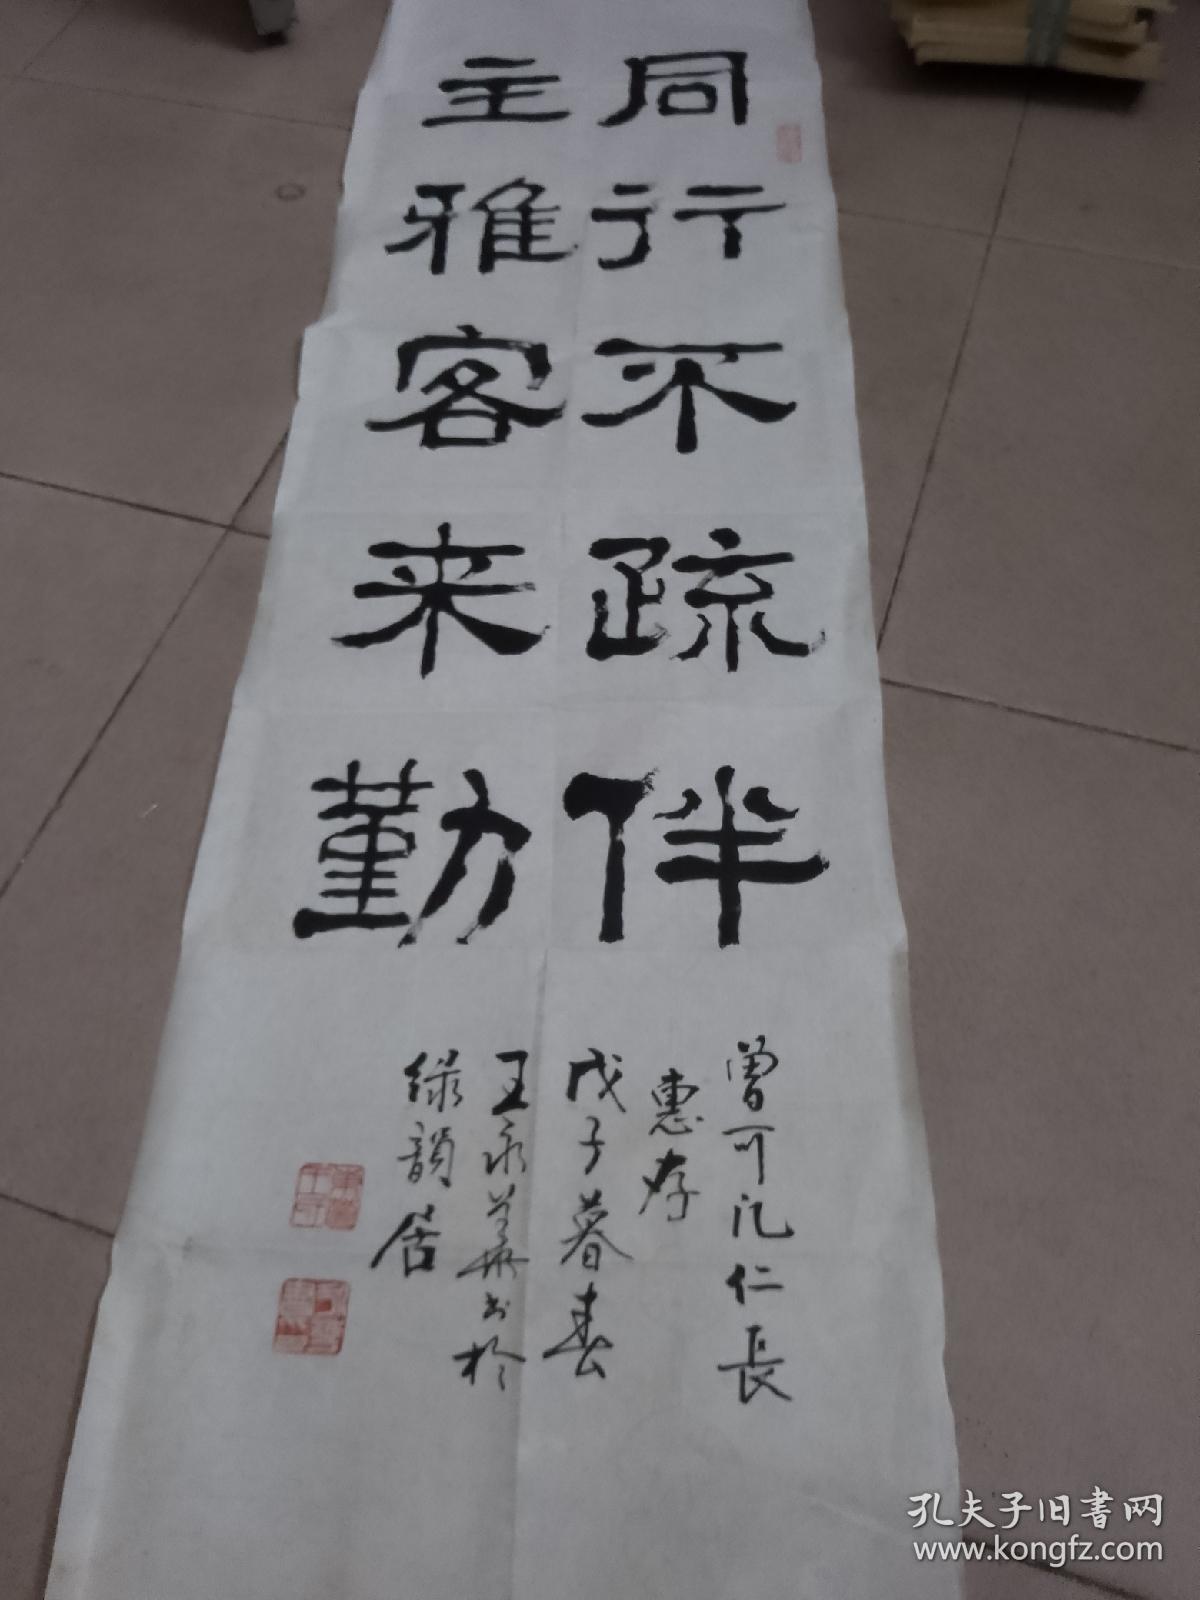 同行不疏伴
主雅客来勤
曾可凡仁長
惠存
戊子暮春
王永華書於
緑韻居
孔夫子旧書网
www.kongfz.com